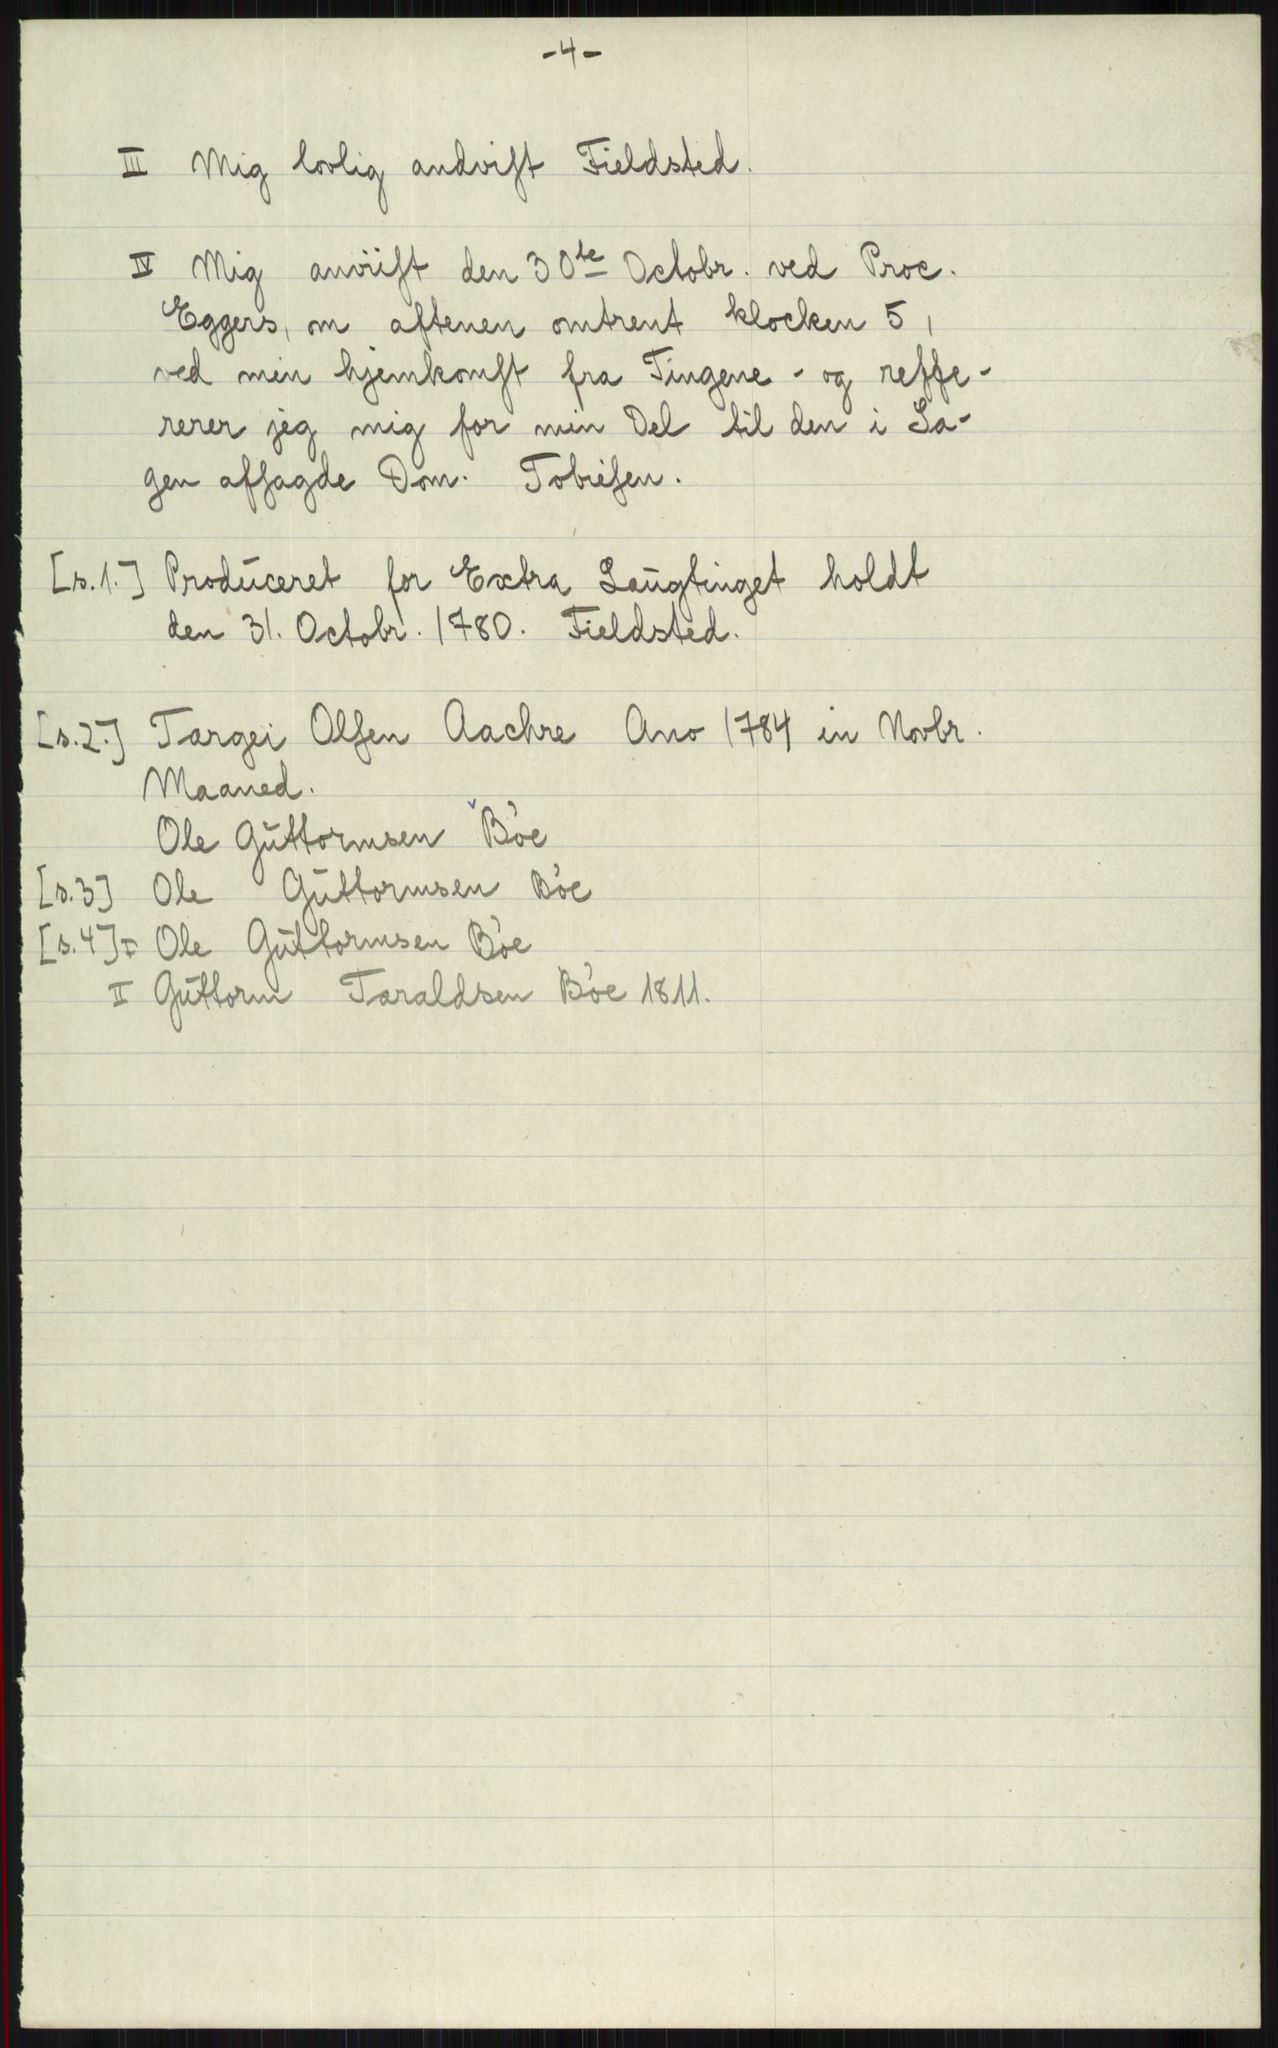 -4-
III Mig lovlig andviſt Fieldsted.
IV Mig anviiſt den 30te Octobr. ved Proc.
Eggers, om aftenen omtrent klocken 5,
ved min hjemkomſt fra Tingene - og reffe-
rerer jeg mig for min Del til den i Sa-
gen afſagde Dom. Tobieſen.
[s.1.] Produceret for Extra Laugtinget holdt
den 31. Octobr. 1780. Fieldsted.
[s.2.] Targei Olſen Aachre Ano 1784 in Novbr.
Maaned.
Ole Guttormsen Bòe
[s.3] Ole Guttormsen Bòe
[s.4] I Ole Guttormsen Bòe
II Guttorm Taraldsen Bòe 1811.